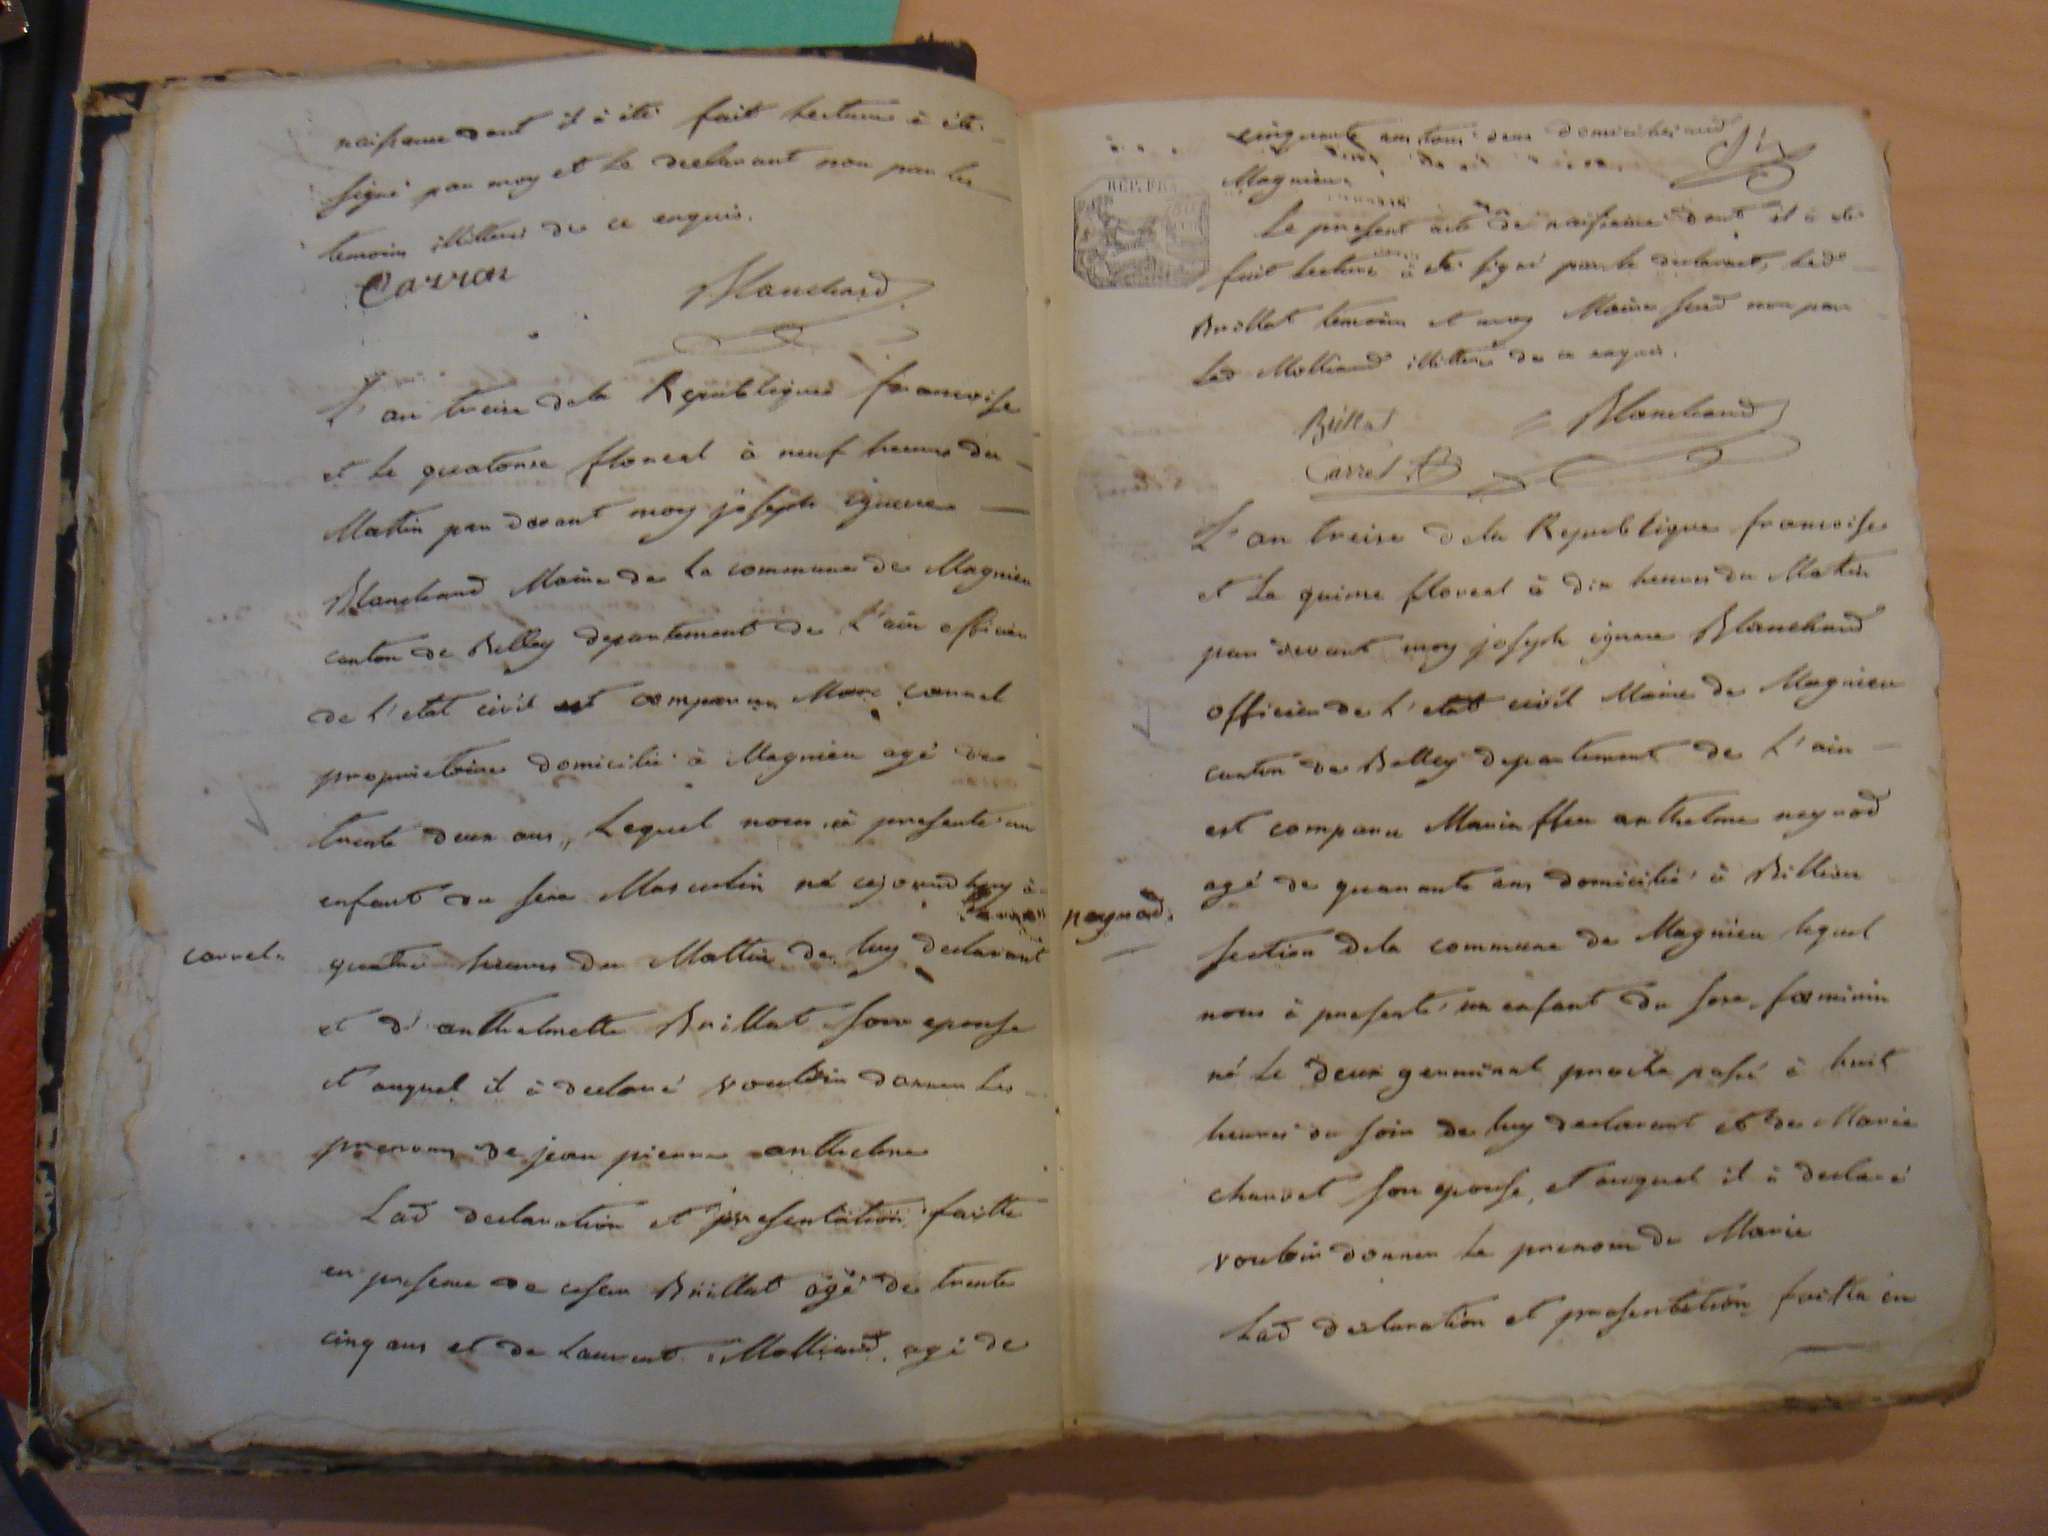 naissance dont il à été fait lecture à été
signé par moy et le declarant non par les
temoins illitteré de ce enquis.
Carron
Blanchard
L'an treise de la Republique francoise
et le quatorse floreal à neuf heures du
Matin par devant moy joseph ignace
Blanchard Maire de la commune de Magnieu
canton de Belley departement de L'ain officier
de l'etat civil est comparu Marc carrel
proprietaire domicilié à Magnieu agé de
trente deux ans, Lequel nous à presenté un
enfant du sexe Masculin né cejourdhuy à
carrel
quatre heures du Mattin de luy declarant
et d'anthelmette Brillat son epouse
et auquel il à declaré vouloir donner les
prenoms de jean pierre anthelme
Lad declaration et presentation faitte
en presence de cesar Brillat agé de trente
cinq ans et de Laurent Molliand agé de
cinquante ans tous deux domiciliés aud
Magnieu
REP. FRA
Le present acte de naissance dont il à été
fait lecture à été signé par le declarant, Led
Brillat temoin et moy Maire susd non par
Led Molliand illitteré de ce enquis.
Brillat
Blanchard
Carrel
L'an treise de la Republique francoise
et Le quinse floreal à dix heures du Matin
par devant moy joseph ignace Blanchard
officier de L'etat civil Maire de Magnieu
canton de Belley departement de L'ain
est comparu anthelme neyrod
agé de quarante ans domicilié à Billieu
neyrod
section de la commune de Magnieu lequel
nous à presenté un enfant du sexe fœminin
né le deux germinal proche passé à huit
heures du soir de luy declarant et de Marie
charvet son epouse, et auquel il à declaré
vouloir donner le prenom de Marie
Lad declaration et presentation faitte en